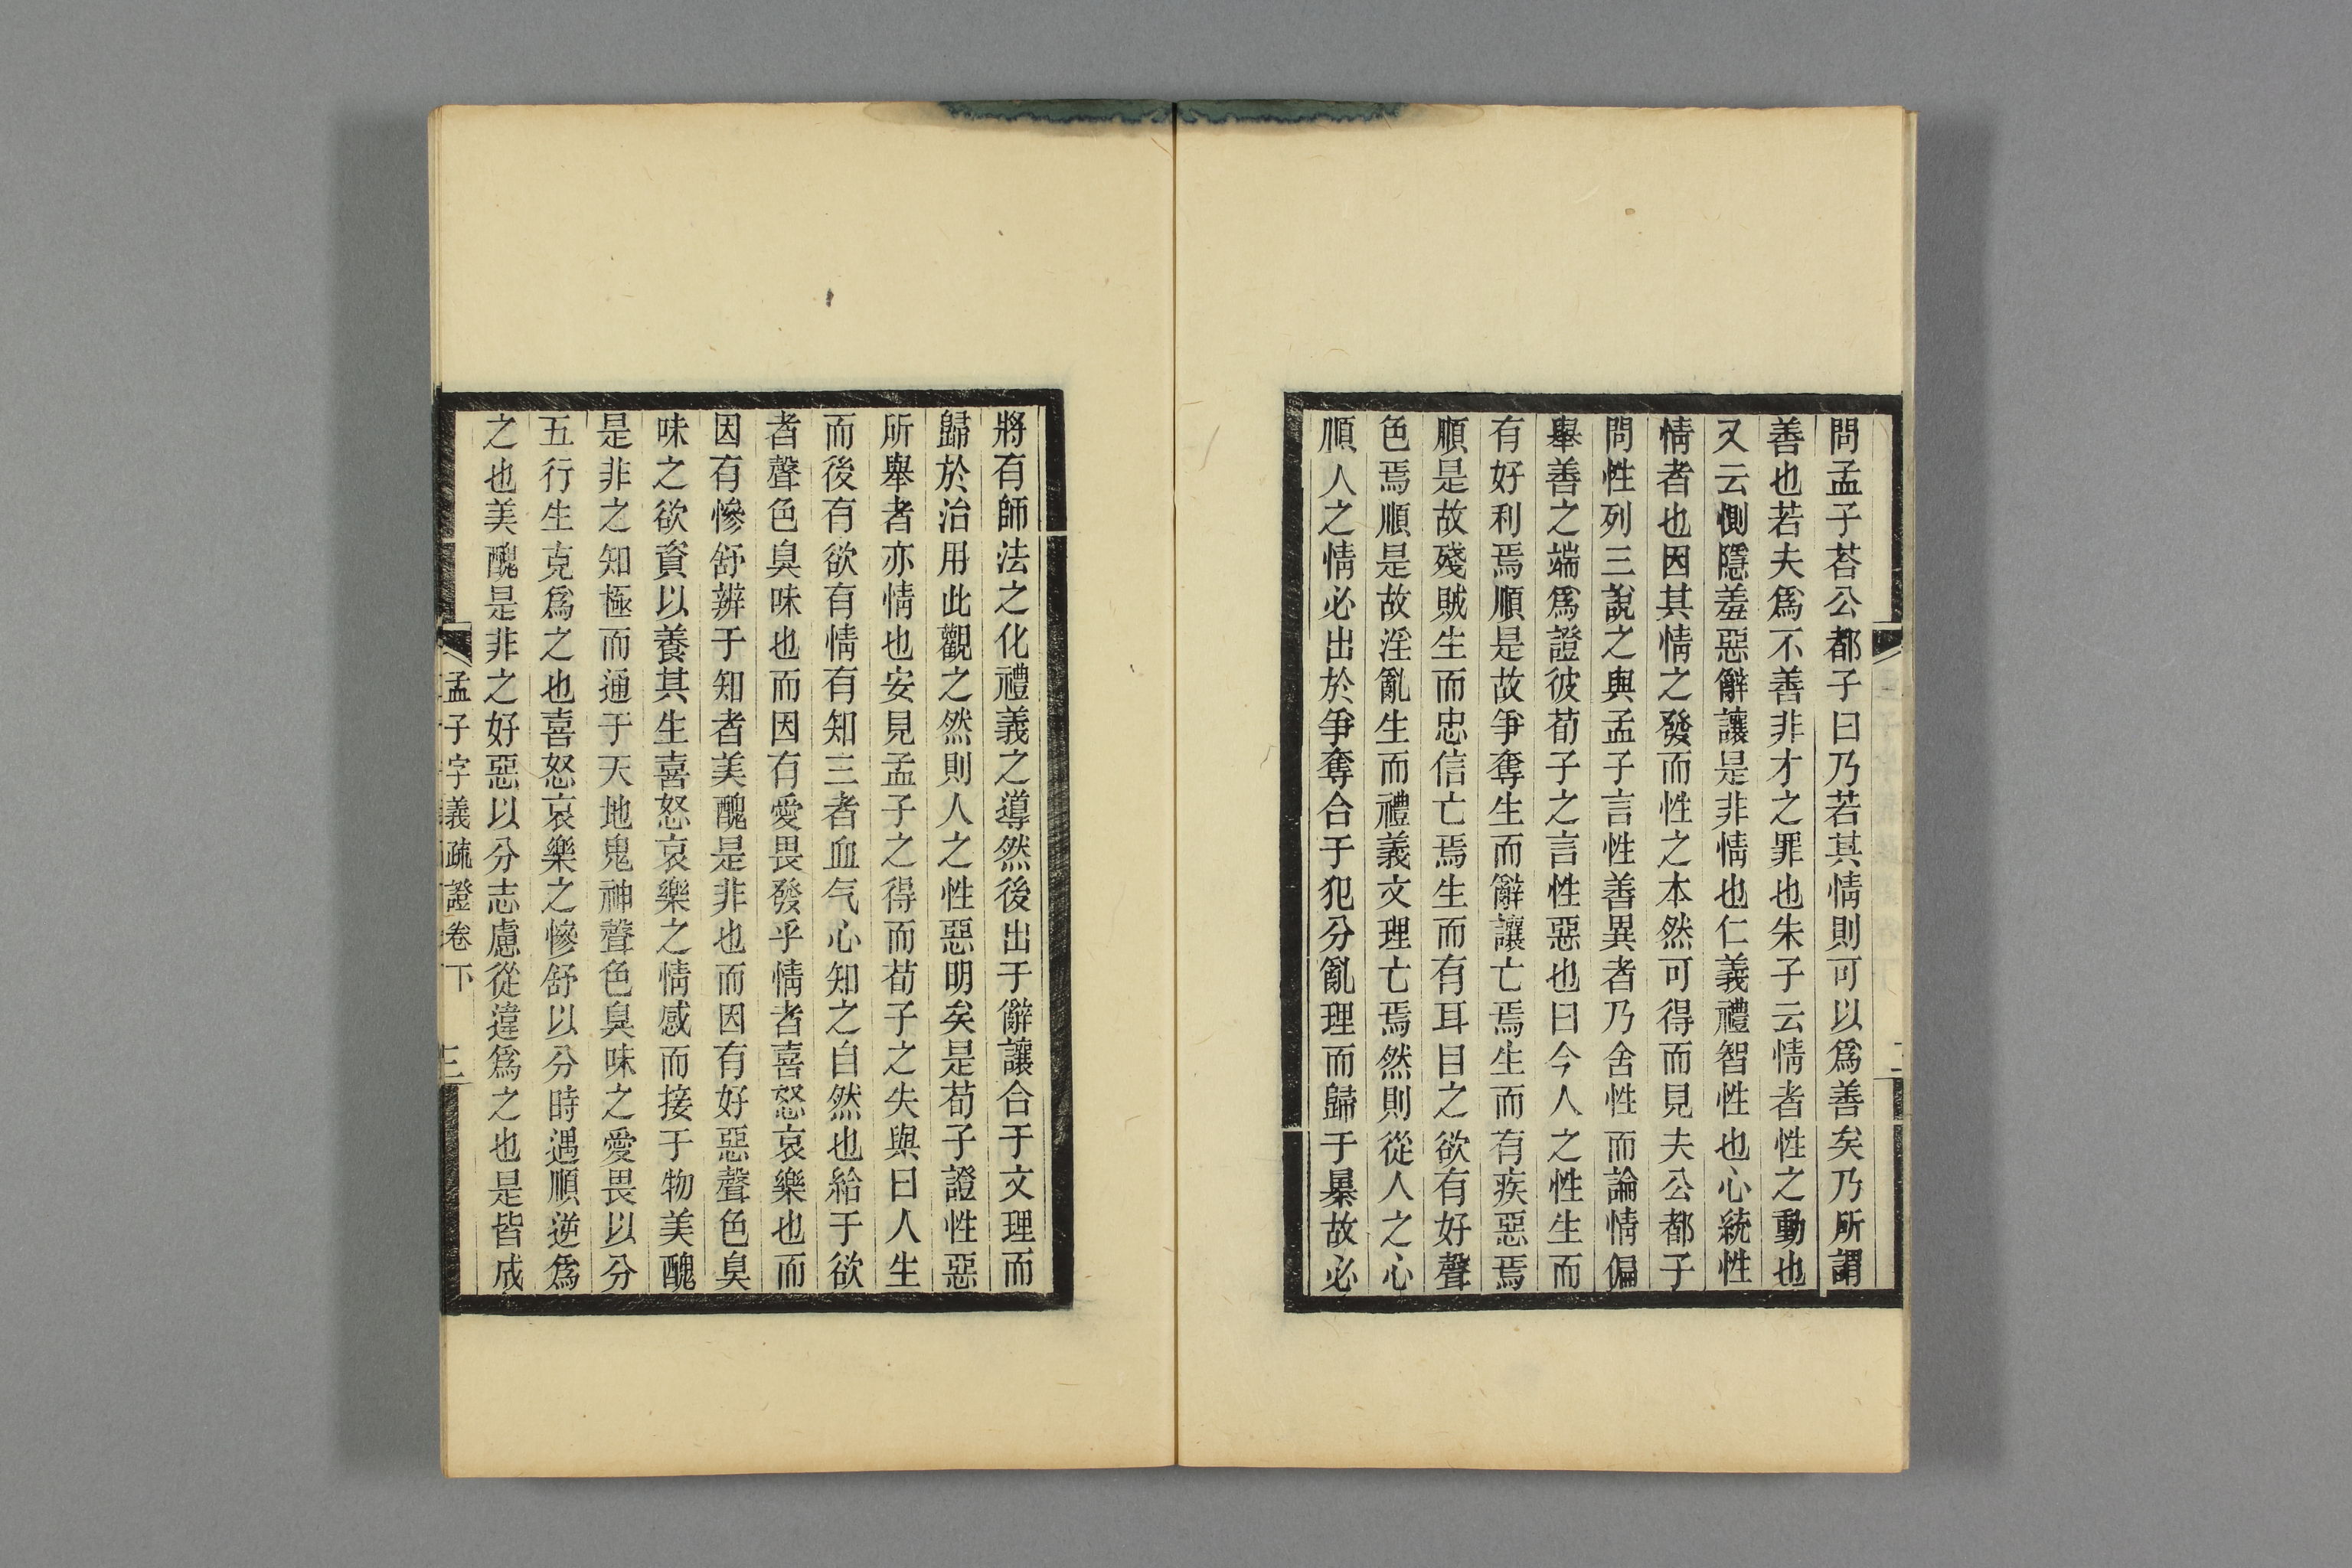 問孟子荅公都子曰乃若其情則可以爲善矣乃所謂
善也若夫爲不善非才之罪也朱子云情者性之動也
又云惻隱羞惡辭讓是非情也仁義禮智性也心統性
情者也因其情之發而性之本然可得而見夫公都子
問性列三說之與孟子言性善異者乃舍性而論情偏
舉善之端爲證彼荀子之言性惡也曰今人之性生而
有好利焉順是故爭奪生而辭讓亡焉生而有疾惡焉
順是故殘賊生而忠信亡焉生而有耳目之欲有好聲
色焉順是故淫亂生而禮義文理亡焉然則從人之心
順人之情必出於爭奪合于犯分亂理而歸于㬥故必
將有師法之化禮義之導然後出于辭讓合于文理而
歸於治用此觀之然則人之性惡明矣是荀子證性惡
所舉者亦情也安見孟子之得而荀子之失與曰人生
而後有欲有情有知三者血气心知之自然也給于欲
者聲色臭味也而因有愛畏發乎情者喜怒哀樂也而
因有慘舒辨于知者美醜是非也而因有好惡聲色臭
味之欲資以養其生喜怒哀樂之情感而接于物美醜
是非之知極而通于天地鬼神聲色臭味之愛畏以分
五行生克爲之也喜怒哀樂之慘舒以分時遇順逆爲
之也美醜是非之好惡以分志慮從違爲之也是皆成
孟子字義疏證卷下 三